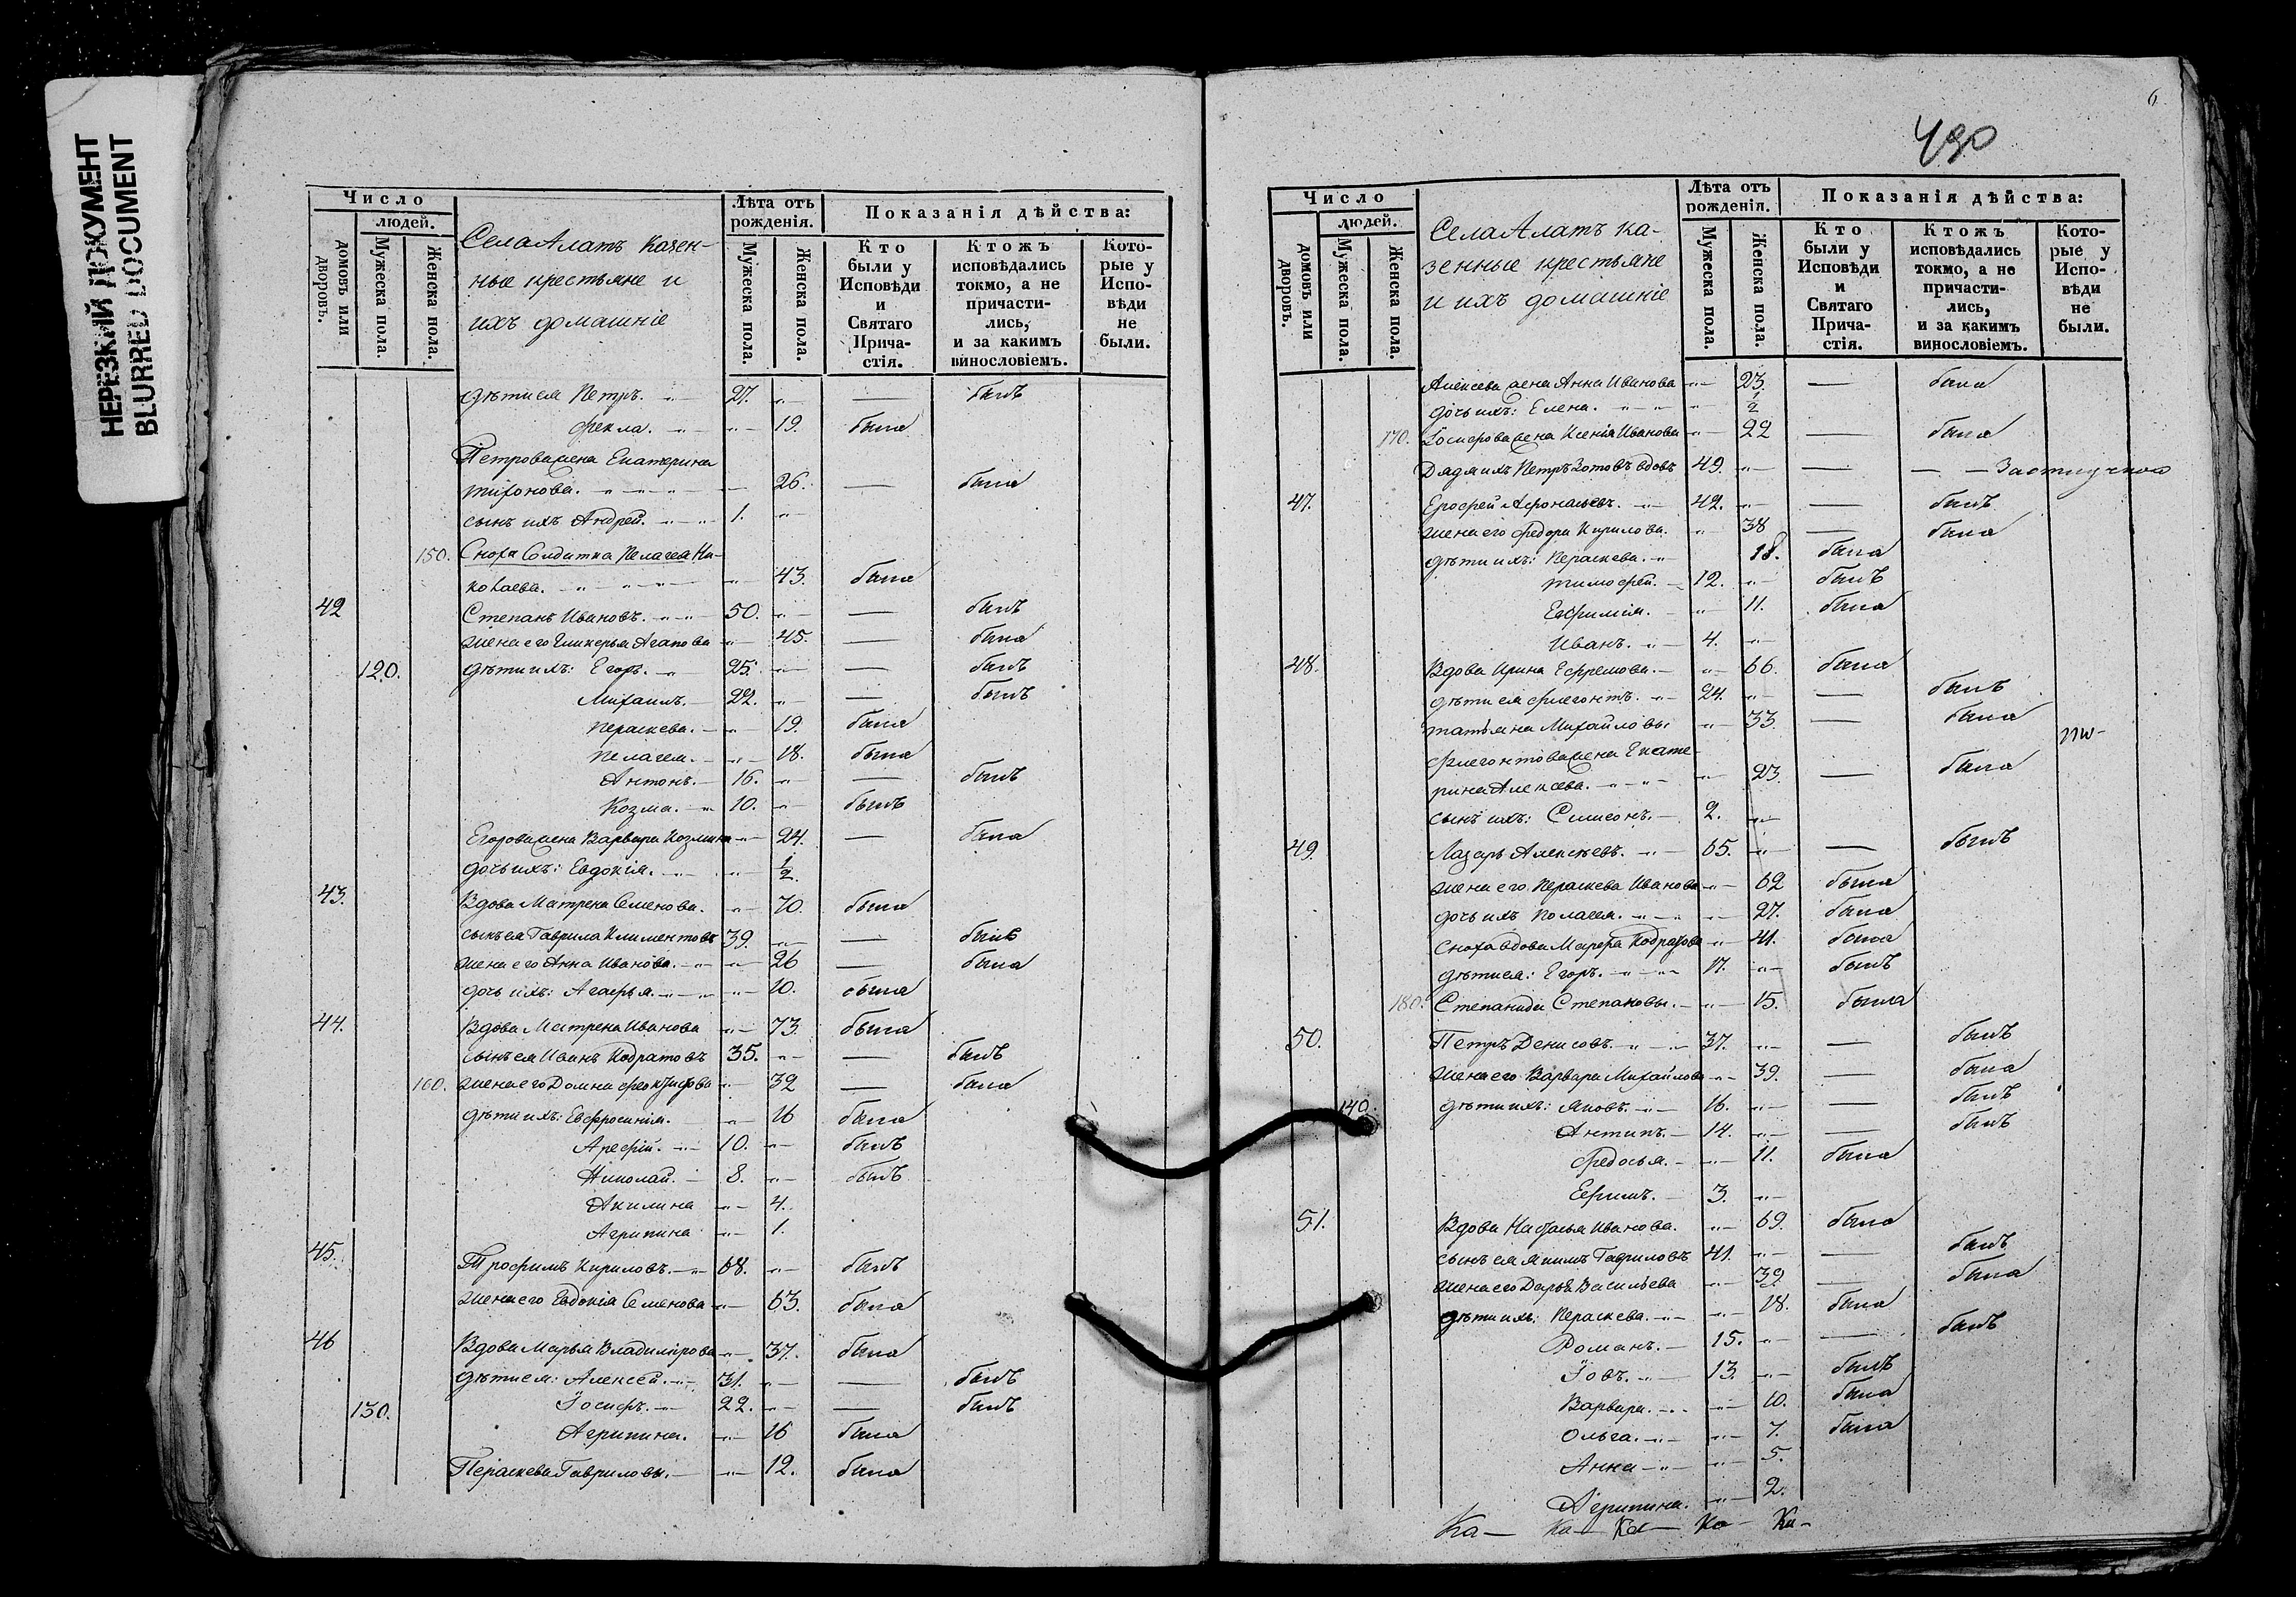 НЕРЕЗКИЙ ДОКУМЕНТ
BLURRED DOCUMENT
Число
людей.
домовъ или дворовъ.
Мужеска пола.
Женска пола.
Села Алатъ казен-
ные крестьяне и
ихъ домашніе
Лѣта отъ рожденія.
Мужеска пола.
Женска пола.
Показанія дѣйства:
Кто были у Исповѣди и Святаго Прича-стія.
Ктожъ исповѣдались токмо, а не причасти-лись, и за какимъ винословіемъ.
Кото-рые у Испо-вѣди не были.
дѣти ея Петръ. 27. — былъ
Фекла. 19. была
Петрова жена Екатерина
Тихонова. 26. — была
сынъ ихъ Андрей. 1.
150. Сноха Солдатка Пелагея Ни-
колаева. 43. была
42 Степанъ Ивановъ. 50. — былъ
жена его Гликерья Агапова 45. — была
120. дѣти ихъ: Егоръ. 25. — былъ
Михаилъ. 22. — былъ
Параскева. 19. была
Пелагея. 18. была
Антонъ. 16. — былъ
Козма. 10. былъ
Егорова жена Варвара Козмина 24. — была
дочь ихъ: Евдокія. 1/2
43. Вдова Матрена Семенова. 70. была
сынъ ея Гаврила Климентовъ 39. — былъ
жена его Анна Иванова. 26 — была
дочь ихъ: Агафья. 10. была
44. Вдова Матрена Иванова 73. была
сынъ ея Иванъ Кодратовъ 35. — былъ
160. жена его Домна 32 — была
дѣти ихъ: Евфросинія. 16 была
Арефій. 10. былъ
Николай. 8. былъ
Акилина 4.
Агрипина 1.
45. Трофимъ Кириловъ. 68. былъ
жена его Евдокія Семенова 63. была
46 Вдова Марья Владимірова 37. была
дѣти ея: Алексей. 31. — былъ
130. Іосифъ. 22. — былъ
Агрипина. 16 была
Параскева Гавриловы. 12. была
6
490
Число
людей.
домовъ или дворовъ.
Мужеска пола.
Женска пола.
Села Алатъ ка-
зенные крестьяне
и ихъ домашніе
Лѣта отъ рожденія.
Мужеска пола.
Женска пола.
Показанія дѣйства:
Кто были у Исповѣди и Святаго Прича-стія.
Ктожъ исповѣдались токмо, а не причасти-лись, и за какимъ винословіемъ.
Кото-рые у Испо-вѣди не были.
Алексева жена Анна Иванова 23. — была
дочь ихъ: Елена. 1/2
170. Іосифова жена Ксенія Иванова 22 — была
Дядя ихъ Петръ Зотовъ вдовъ 49. — — За отлучкою
47. Ерофей Афонасьевъ. 42. — былъ
жена его Федора Кирилова. 38 — была
дѣти ихъ: Параскева. 18. была
Тимофей. 12. былъ
Евфимія. 11. была
Иванъ. 4.
48. Вдова Ирина Ефремова. 66. была
дѣти ея Флегонтъ. 24. — былъ
Татьяна Михайловы 33. — была
Флегонтова жена Екате-
рина Алексева. 23. — была
сынъ ихъ: Симеонъ. 2.
49. Лазарь Алексѣевъ. 65. — былъ
жена его Параскева Иванова 62 была
дочь ихъ Пелагея. 27. была
Сноха вдова Марфа Кодратова 41. была
дѣти ея: Егоръ. 17. былъ
180. Степанида Степановы. 15. была
50. Петръ Денисовъ. 37. — былъ
жена его Варвара Михайлова 39. — была
140. дѣти ихъ: Яковъ. 16. — былъ
Антипъ. 14. — былъ
Федосья. 11. была
Ефимъ. 3.
51. Вдова Настасья Иванова. 69. была
сынъ ея Якимъ Гавриловъ 41. — былъ
жена его Дарья Васильева 39. — была
дѣти ихъ: Параскева. 18. была
Романъ. 15. — былъ
Іовъ. 13. былъ
Варвара. 10. была
Ольга. 7. была
Анна 5.
Агрипина. 2.
Ка— Ка— Ка— Ка— Ка—